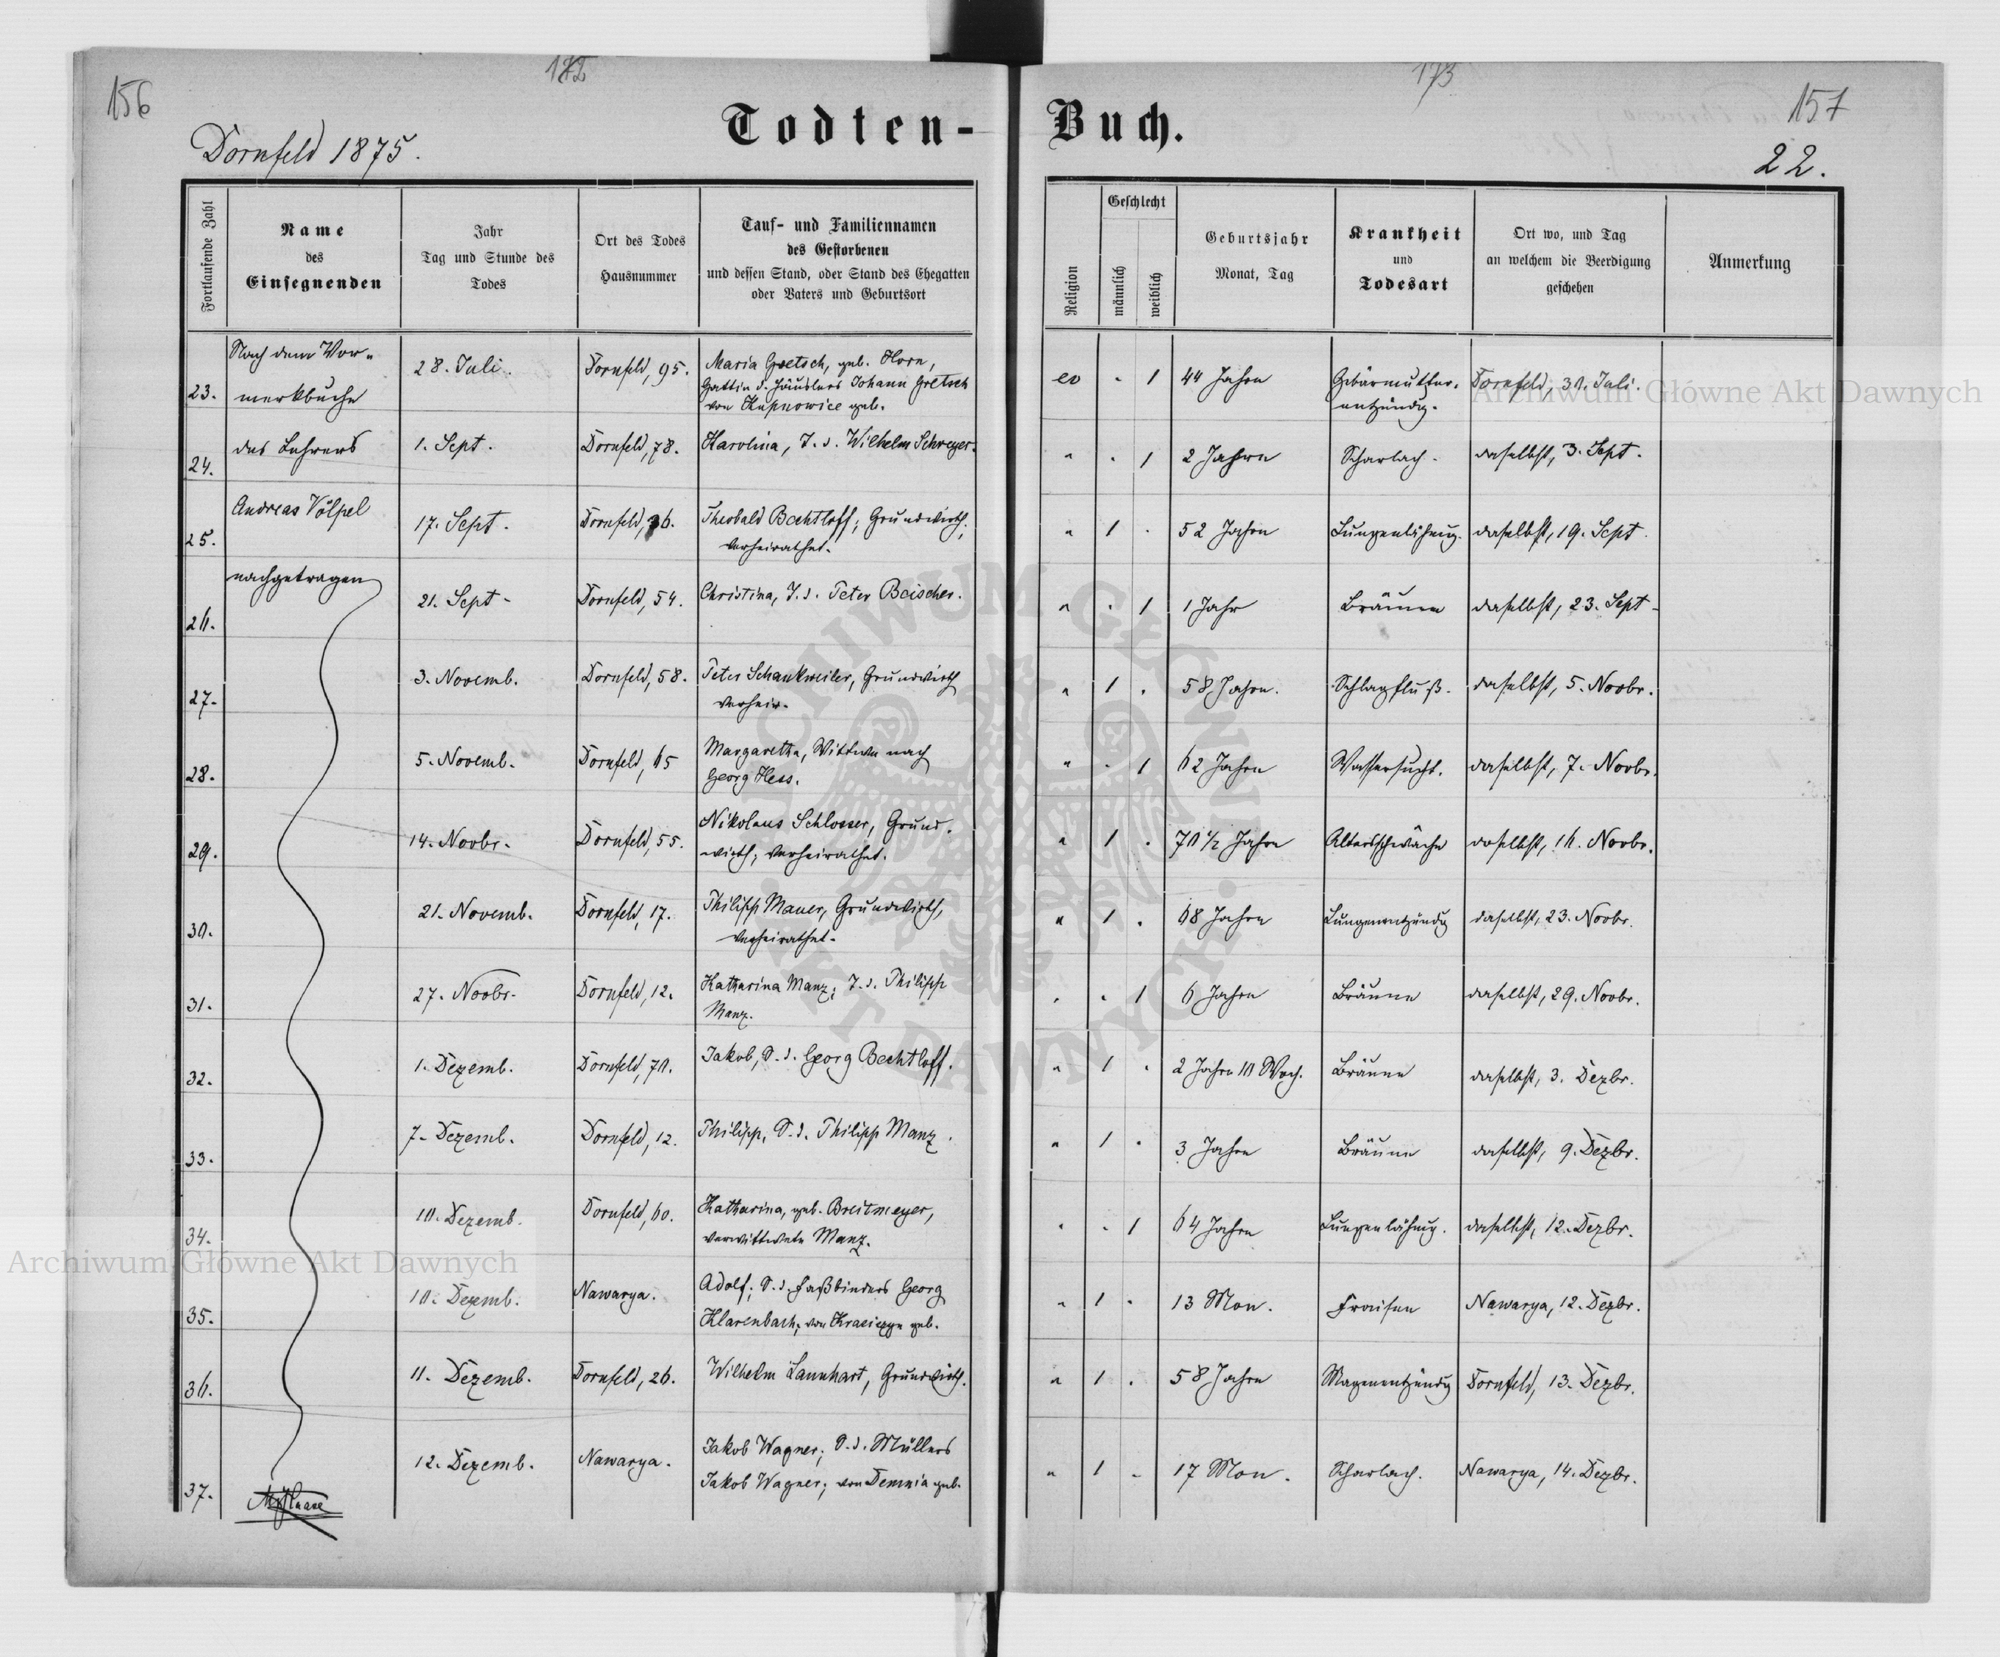 156
172
173
157
Todten- Buch.
Dornfeld 1875.
22.
Fortlaufende Zahl
Name
des
Einsegnenden
Jahr
Tag und Stunde des
Todes
Ort des Todes
Hausnummer
Tauf- und Familiennamen
des Gestorbenen
und dessen Stand, oder Stand des Ehegatten
oder Vaters und Geburtsort
Religion
Geschlecht
männlich
weiblich
Geburtsjahr
Monat, Tag
Krankheit
und
Todesart
Ort wo, und Tag
an welchem die Beerdigung
geschehen
Anmerkung
Nach dem Vor-
merkbuche
des Lehrers
Andreas Völpel
nachgetragen
23. 28. Juli. Dornfeld, 95. Maria Gretsch, geb. Horn,
Gattin d. Häuslers Johann Gretsch
von geb.
ev - 1 44 Jahre Gebärmutter-
entzündg. Dornfeld, 30. Juli.
24. 1. Sept. Dornfeld, 78. Karolina, T. d. Wilhelm Schreyer.
" . 1 2 Jahre Scharlach. daselbst, 3. Sept.
25. 17. Sept. Dornfeld, 36. Theobald Bechtloff; Grundwirth,
verheirathet.
" 1 . 52 Jahre Lungenlähmg. daselbst, 19. Sept.
26. 21. Sept. Dornfeld, 54. Christina, T. d. Peter Beischer.
" . 1 1 Jahr Bräune daselbst, 23. Sept.
27. 3. Novemb. Dornfeld, 58. Peter Schankweiler, Grundwirth
verheir.
" 1 . 58 Jahre. Schlagfluß. daselbst, 5. Novbr.
28. 5. Novemb. Dornfeld, 65 Margaretha, Wittwe nach
Georg Hess.
" . 1 62 Jahre Wassersucht. daselbst, 7. Novbr.
29. 14. Novbr. Dornfeld, 55. Nikolaus Schlosser, Grund-
wirth, verheirathet.
" 1 . 70 1/2 Jahre Altersschwäche daselbst, 16. Novbr.
30. 21. Novemb. Dornfeld, 17. Philipp Mauer, Grundwirth,
verheirathet.
" 1 . 68 Jahre Lungenentzündg daselbst, 23. Novbr.
31. 27. Novbr. Dornfeld, 12. Katharina Manz; T. d. Philipp
Manz.
" . 1 6 Jahre Bräune daselbst, 29. Novbr.
32. 1. Dezemb. Dornfeld, 70. Jakob, S. d. Georg Bechtloff.
" 1 . 2 Jahre 10 Woch. Bräune daselbst, 3. Dezbr.
33. 7. Dezemb. Dornfeld, 12. Philipp, S. d. Philipp Manz.
" 1 . 3 Jahre Bräune daselbst, 9. Dezbr.
34. 10. Dezemb. Dornfeld, 60. Katharina, geb. Breitmeyer,
verwittwete Manz.
" . 1 64 Jahre Lungenlähmg. daselbst, 12. Dezbr.
35. 10. Dezemb. Nawarya. Adolf; S. d. Faßbinders Georg
Klarenbach; von geb.
" 1 . 13 Mon. Fraisen Nawarya, 12. Dezbr.
36. 11. Dezemb. Dornfeld, 26. Wilhelm Lannhart, Grundwirth.
" 1 . 58 Jahre Magenentzündg Dornfeld, 13. Dezbr.
37. 12. Dezemb. Nawarya. Jakob Wagner; S. d. Müllers
Jakob Wagner; von Demnia geb.
" 1 - 17 Mon. Scharlach. Nawarya, 14. Dezbr.
Archiwum Główne Akt Dawnych
Archiwum Główne Akt Dawnych
ARCHIWUM GŁÓWNE AKT DAWNYCH